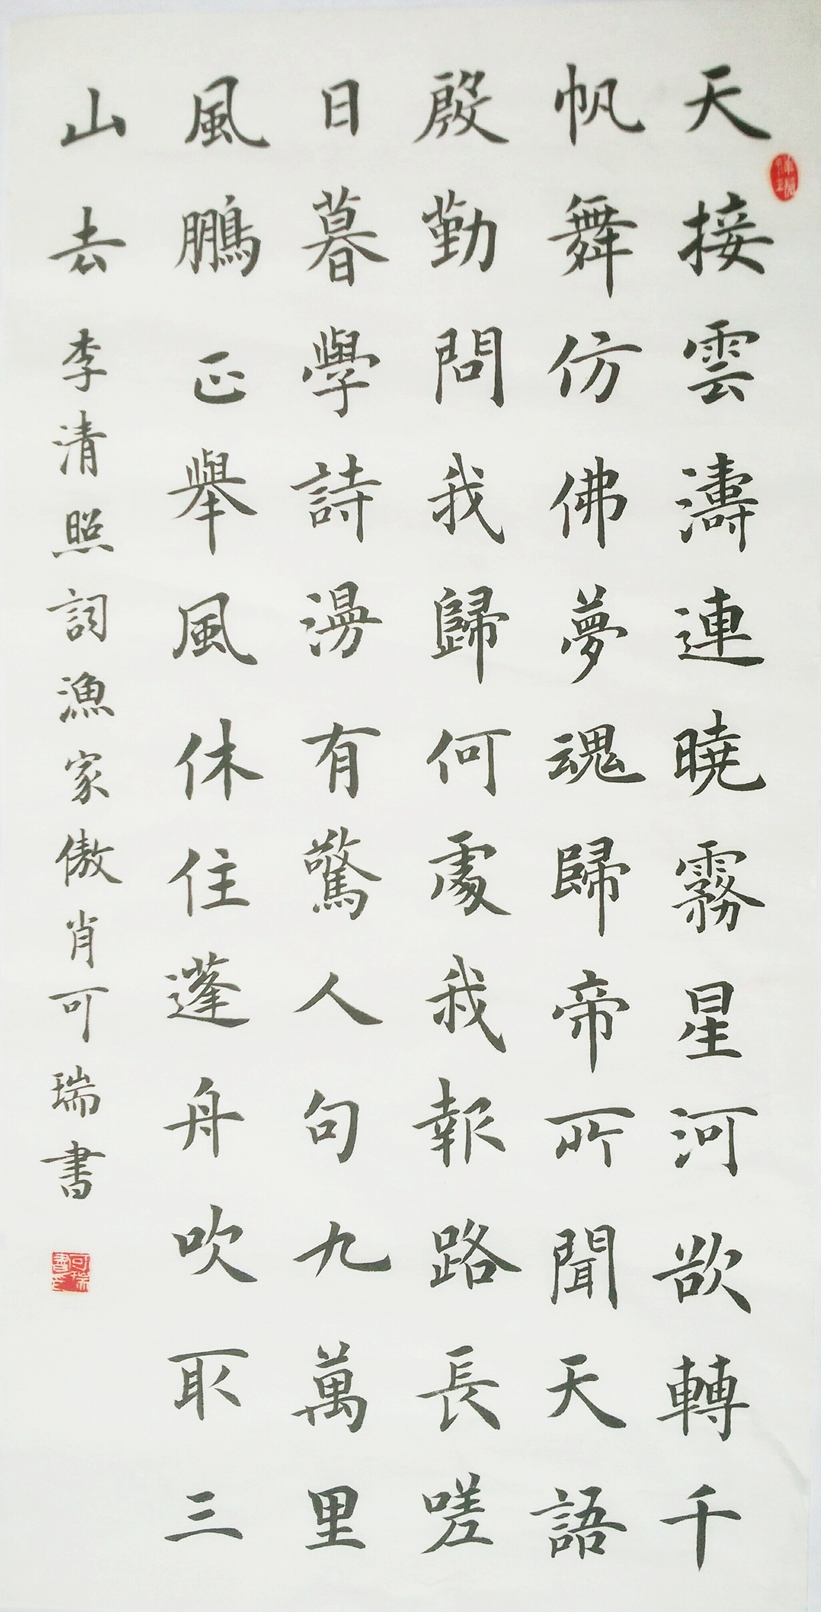 天接雲濤連曉霧星河欲轉千
帆舞仿佛夢魂歸帝所聞天語
殷勤問我歸何處我報路長嗟
日暮學詩漫有驚人句九萬里
風鵬正舉風休住蓬舟吹取三
山去 李清照詞漁家傲肖可瑞書
可瑞書印